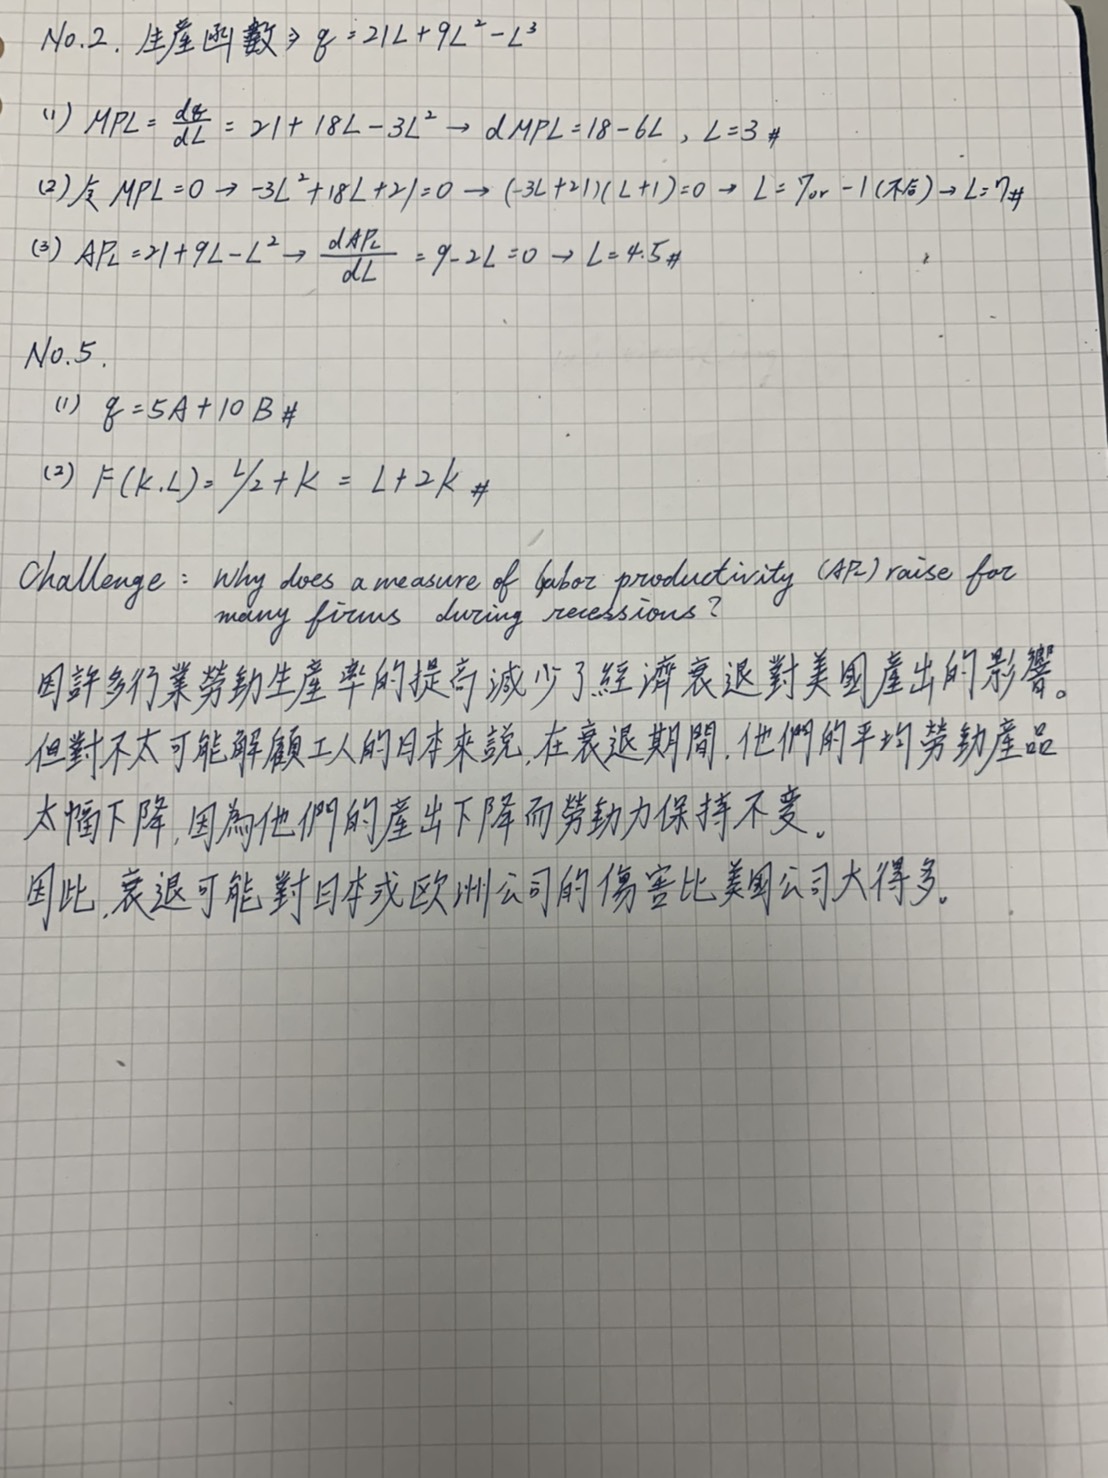 No.2. 生產函數 ⇒ q = 21L + 9L² - L³
(1) MPL = dq/dL = 21 + 18L - 3L² → dMPL = 18 - 6L , L = 3 #
(2) 令 MPL = 0 → -3L² + 18L + 21 = 0 → (-3L + 21)(L + 1) = 0 → L = 7 or -1 (不合) → L = 7 #
(3) APL = 21 + 9L - L² → dAPL/dL = 9 - 2L = 0 → L = 4.5 #
No.5.
(1) q = 5A + 10B #
(2) F(K.L) = L/2 + K = L + 2K #
Challenge : Why does a measure of labor productivity (APL) raise for
many firms during recessions?
因許多行業勞動生產率的提高減少了經濟衰退對美國產出的影響。
但對不太可能解顧工人的日本來說,在衰退期間,他們的平均勞動產品
太幅下降,因為他們的產出下降而勞動力保持不變。
因此,衰退可能對日本或欧洲公司的傷害比美國公司大得多。